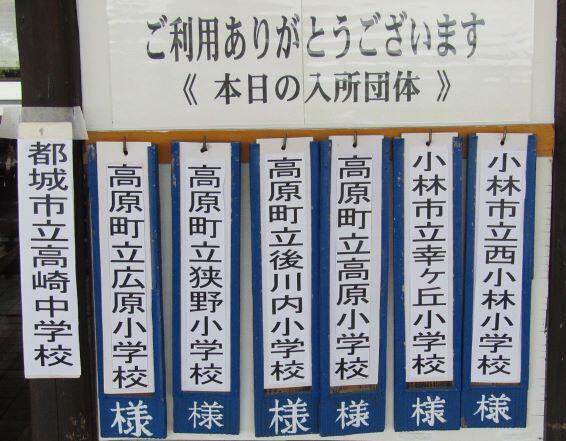 ご利用ありがとうございます
《 本日の入所団体 》
小林市立西小林小学校
様
小林市立幸ヶ丘小学校
様
高原町立高原小学校
様
高原町立後川内小学校
様
高原町立狭野小学校
様
高原町立広原小学校
様
都城市立高崎中学校